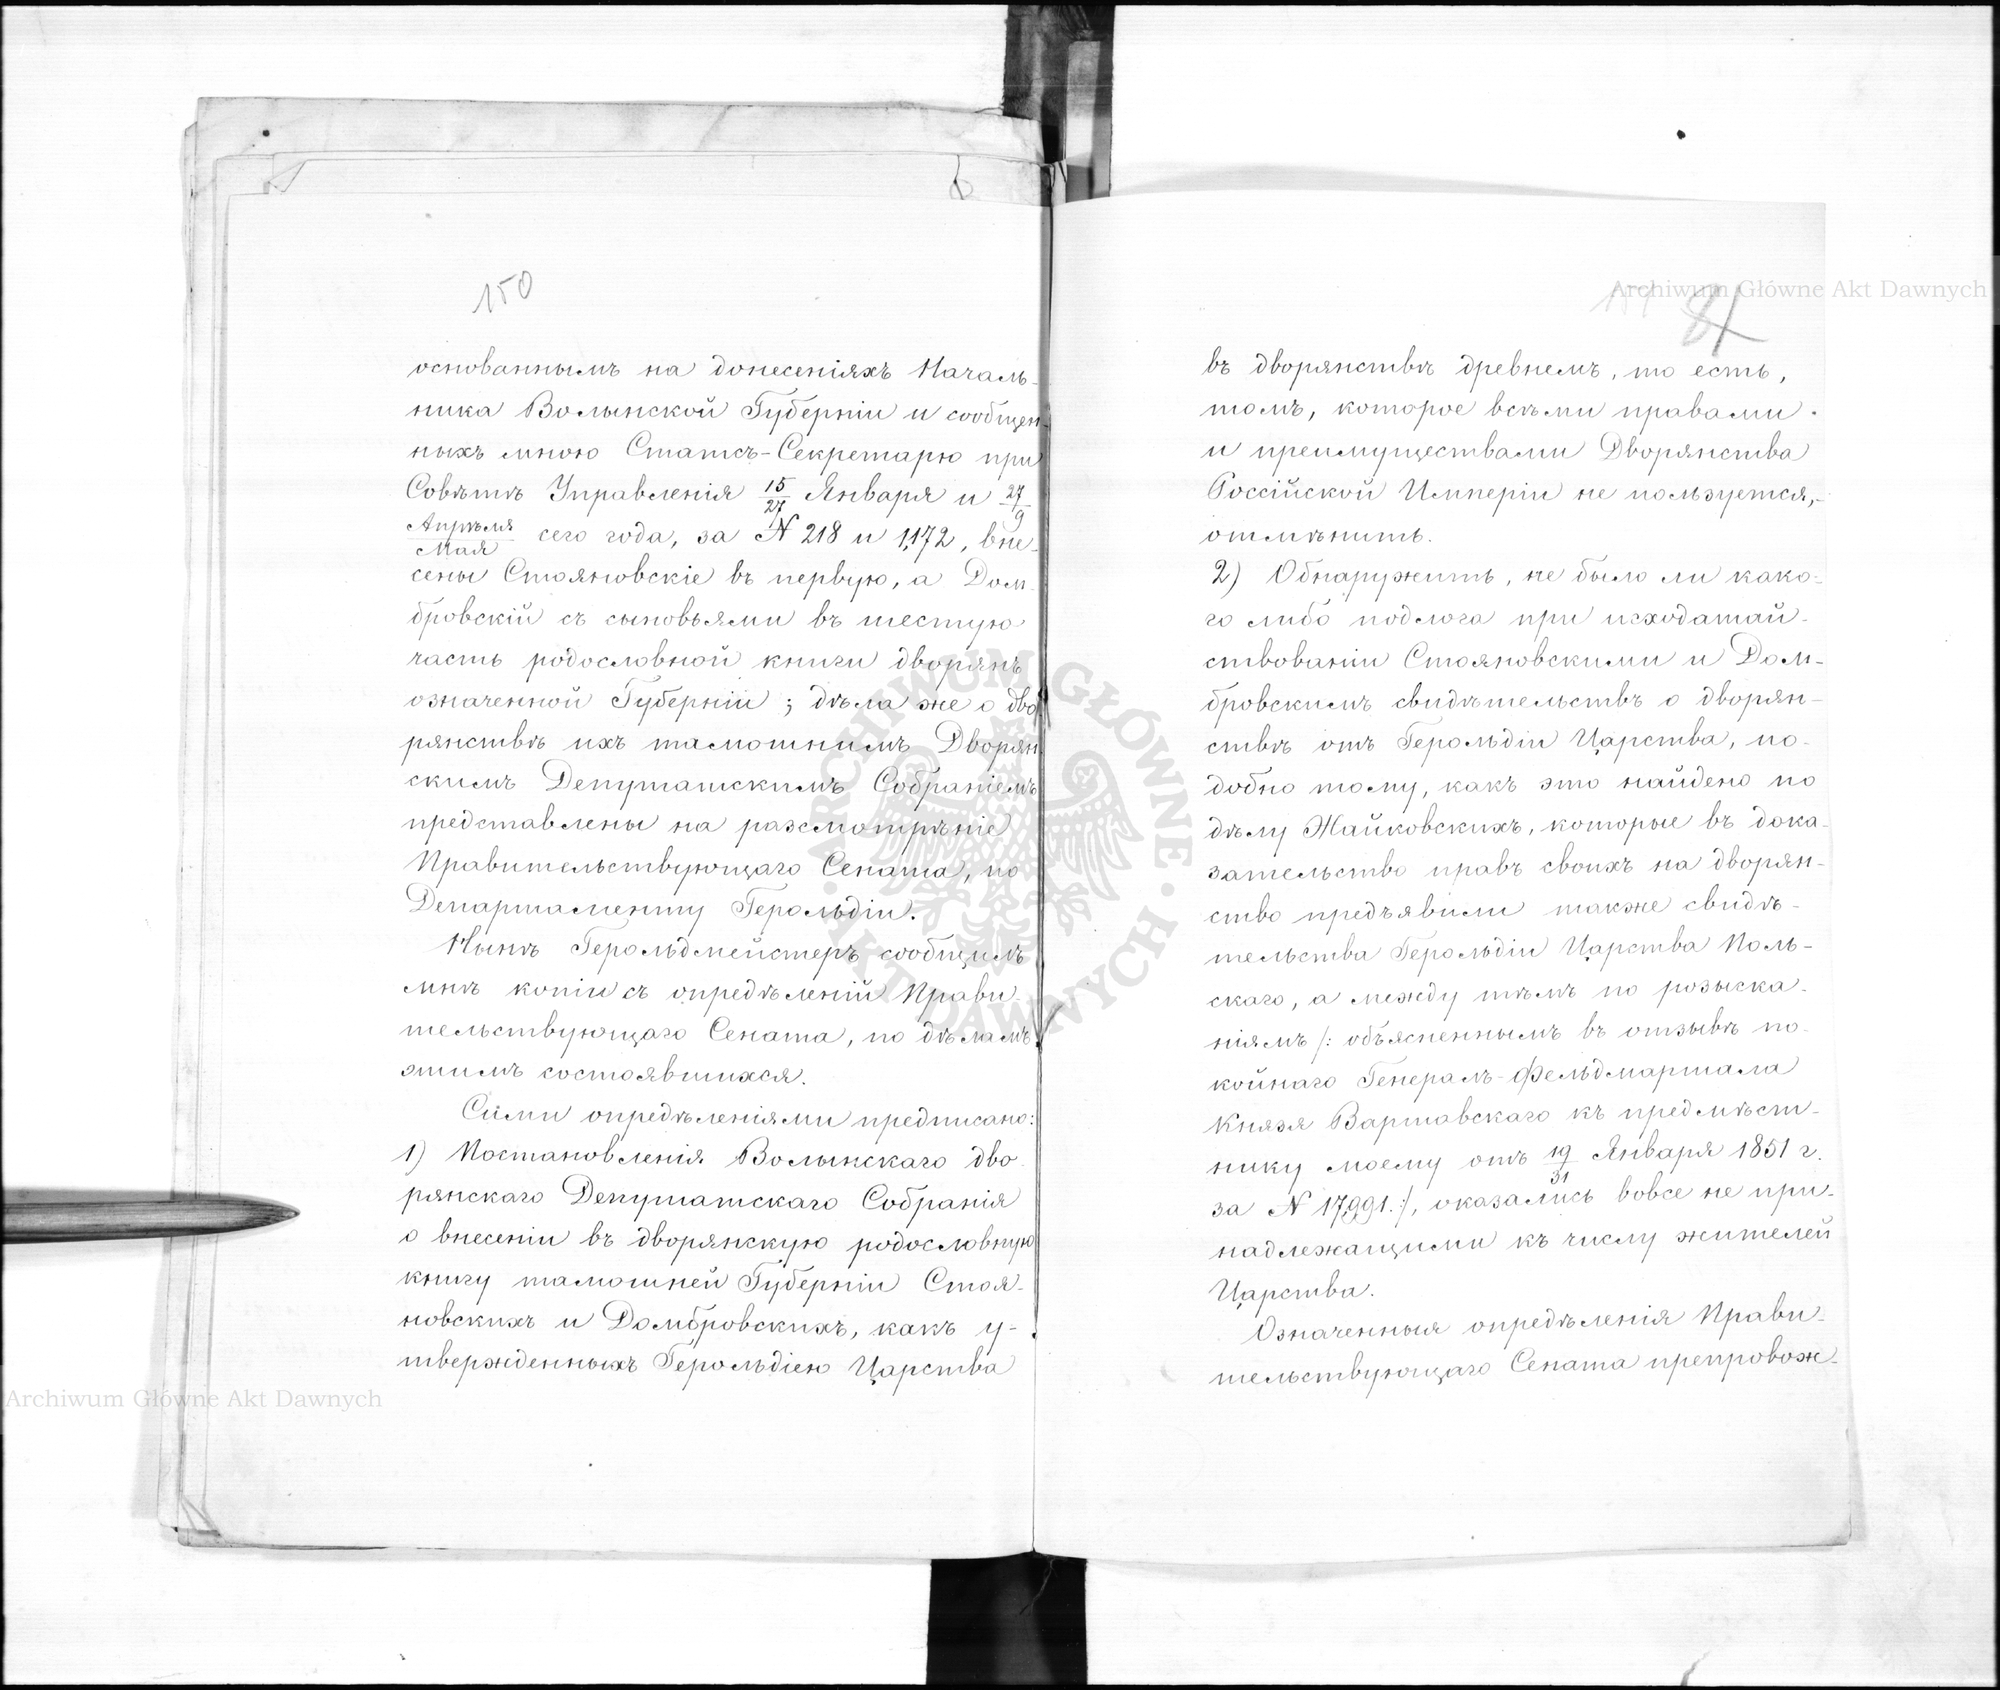 150
основаннымъ на донесеніяхъ Началь-
ника Волынской Губерніи и сообщен-
ныхъ мною Статсъ-Секретарю при
Совѣтѣ Управленія 15/27 Января и 27/9
Апрѣля/Мая сего года, за № 218 и 1,172, вне-
сены Стояновскіе въ первую, а Дом-
бровскій съ сыновьями въ шестую
часть родословной книги дворянъ
означенной Губерніи; дѣла же о дво
рянствѣ ихъ тамошнимъ Дворян
скимъ Депутатскимъ Собраніемъ
представлены на разсмотрѣніе
Правительствующаго Сената, по
Департаменту Герольдіи.
Нынѣ Герольдмейстеръ сообщилъ
мнѣ копіи съ опредѣленій Прави-
тельствующаго Сената, по дѣламъ
этимъ состоявшихся.
Сими опредѣленіями предписано:
1) Постановленія Волынскаго дво-
рянскаго Депутатскаго Собранія
о внесеніи въ дворянскую родословную
книгу тамошней Губерніи Стоя-
новскихъ и Домбровскихъ, какъ у-
твержденныхъ Герольдіею Царства
Archiwum Główne Akt Dawnych
81
въ дворянствѣ древнемъ, то есть,
томъ, которое всѣми правами
и преимуществами Дворянства
Россійской Имперіи не пользуется,-
отмѣнить.
2) Обнаружить, не было ли како-
го либо подлога при исходатай-
ствованіи Стояновскими и Дом-
бровскимъ свидѣтельствъ о дворян-
ствѣ отъ Герольдіи Царства, по-
добно тому, какъ это найдено по
дѣлу Жайковскихъ, которые въ дока-
зательство правъ своихъ на дворян-
ство предъявили также свидѣ-
тельства Герольдіи Царства Поль-
скаго, а между тѣмъ по розыска-
ніямъ /: объясненнымъ въ отзывѣ по-
койнаго Генералъ-Фельдмаршала
Князя Варшавскаго къ предмѣст-
нику моему отъ 19/31 Января 1851 г.
за № 17,991.:/, оказались вовсе не при-
надлежащими къ числу жителей
Царства.
Означенныя опредѣленія Прави-
тельствующаго Сената препровож-
Archiwum Główne Akt Dawnych
ARCHIWUM GŁÓWNE AKT DAWNYCH